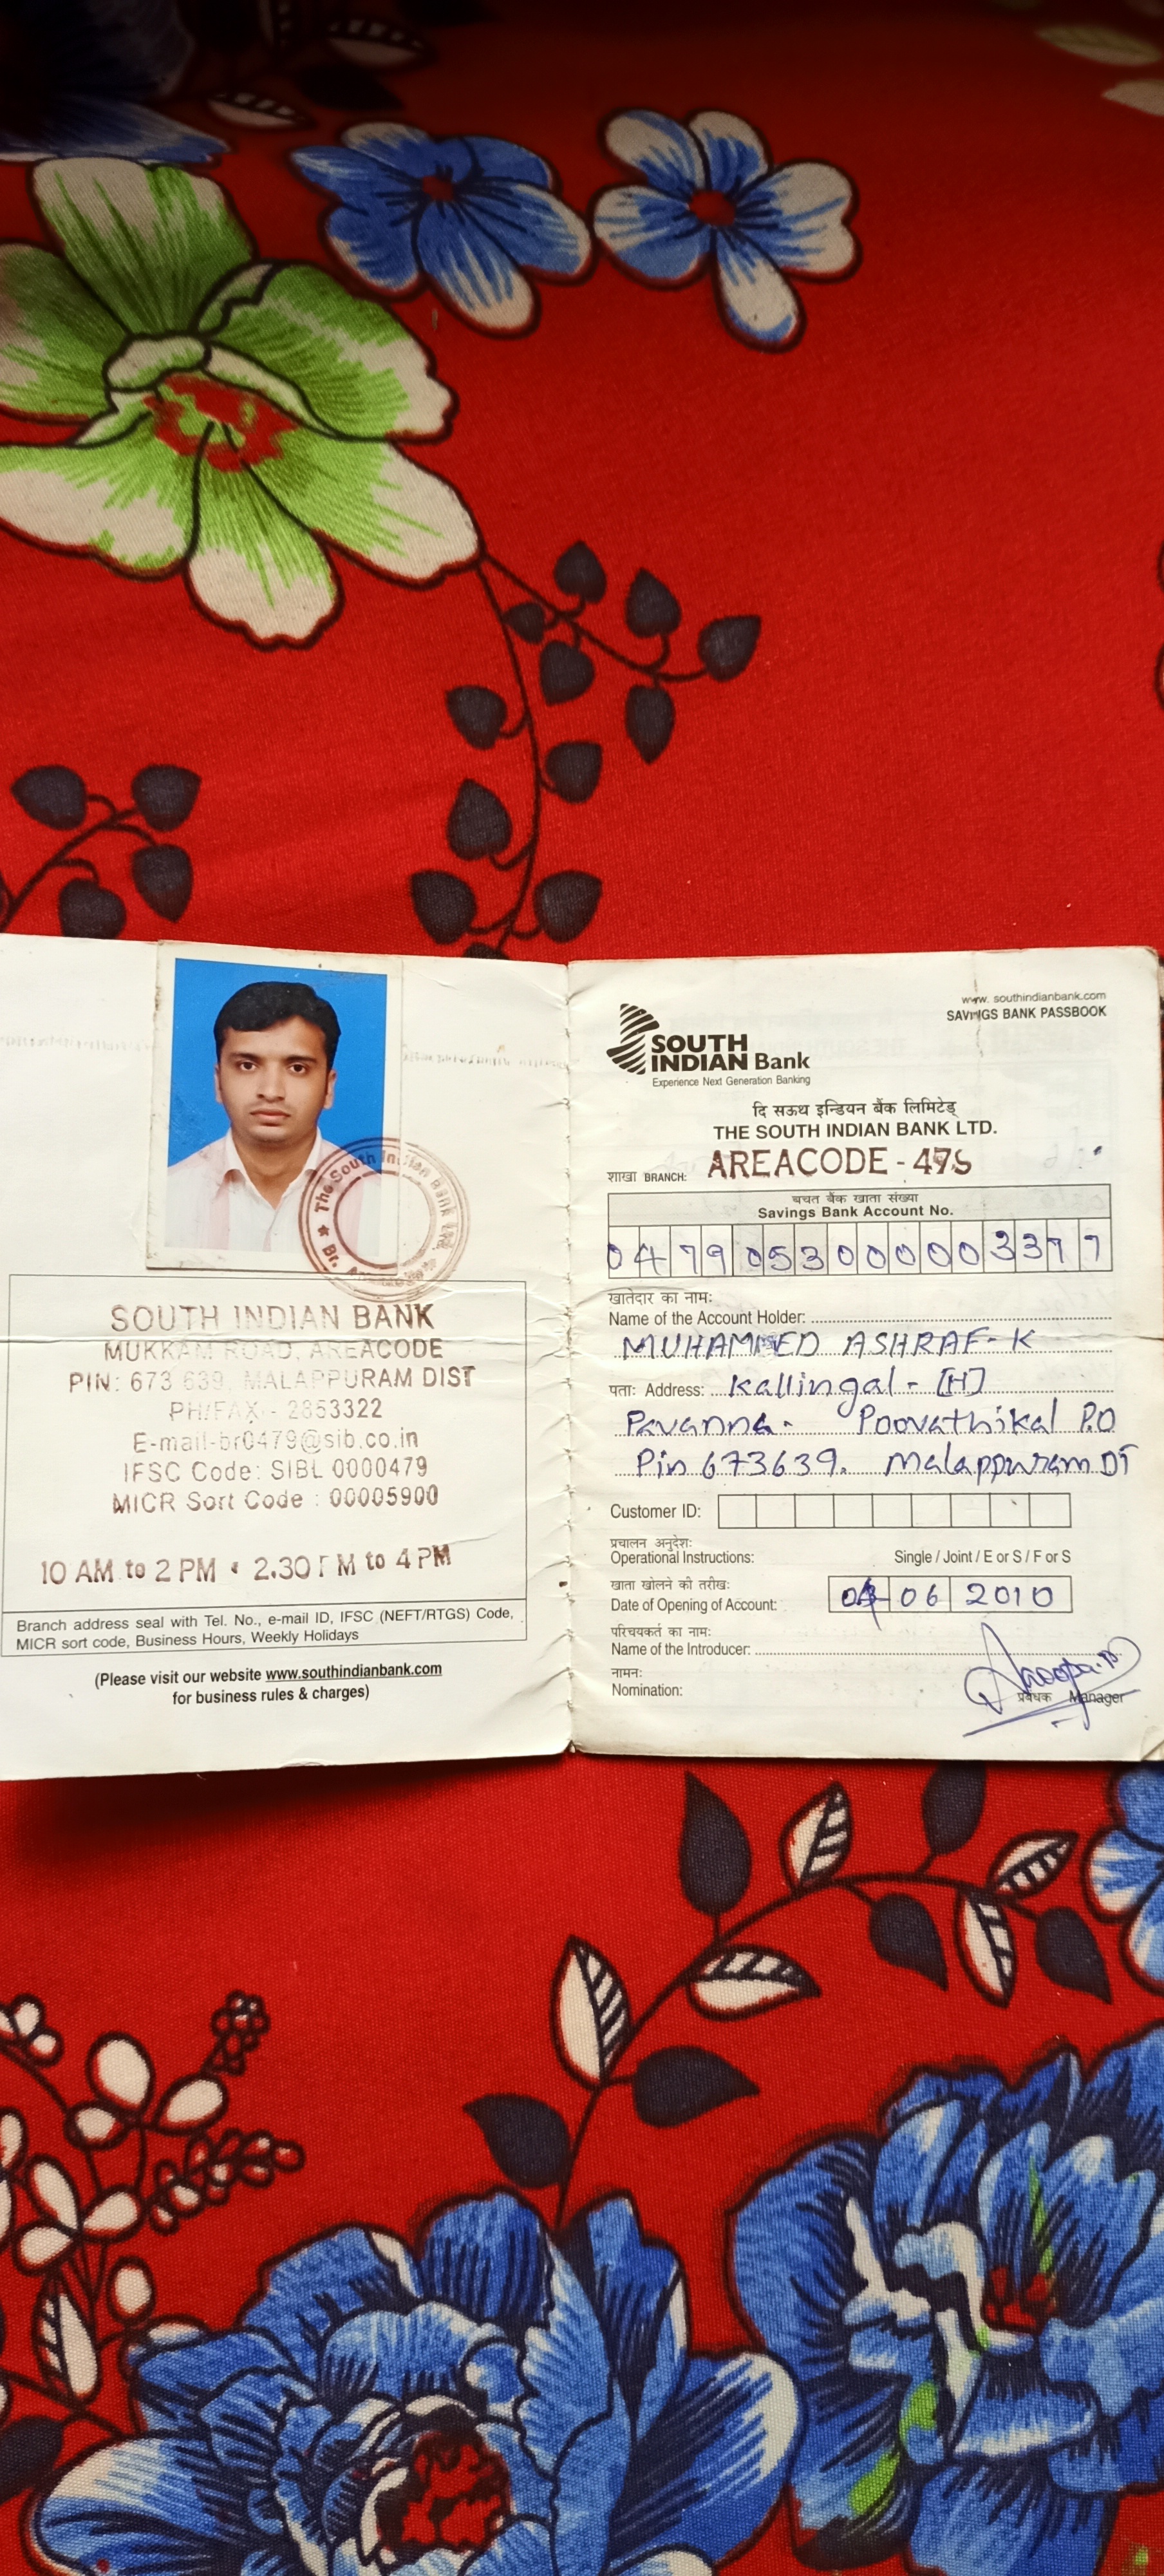 The South Indian Bank Ltd. ★ Br.
SOUTH INDIAN BANK
MUKKAM ROAD, AREACODE
PIN: 673 639, MALAPPURAM DIST
PH/FAX - 2853322
E-mail-br0479@sib.co.in
IFSC Code: SIBL 0000479
MICR Sort Code : 00005900
10 AM to 2 PM • 2.30 PM to 4 PM
Branch address seal with Tel. No., e-mail ID, IFSC (NEFT/RTGS) Code,
MICR sort code, Business Hours, Weekly Holidays
(Please visit our website www.southindianbank.com
for business rules & charges)
www. southindianbank.com
SAVINGS BANK PASSBOOK
SOUTH
INDIAN Bank
Experience Next Generation Banking
दि सऊथ इन्डियन बैंक लिमिटेड्
THE SOUTH INDIAN BANK LTD.
शाखा BRANCH: AREACODE - 479
बचत बैंक खाता संख्या
Savings Bank Account No.
0479053000003377
खातेदार का नाम:
Name of the Account Holder:
MUHAMMED ASHRAF-K
पता: Address: Kallingal - [H]
Pavanna - Poovathikal P.O
Pin 673639. Malappuram DT
Customer ID:
प्रचालन अनुदेश:
Operational Instructions: Single / Joint / E or S / F or S
खाता खोलने की तरीख:
Date of Opening of Account: 04 06 2010
परिचयकर्त का नाम:
Name of the Introducer:
नामन:
Nomination:
प्रबंधक Manager